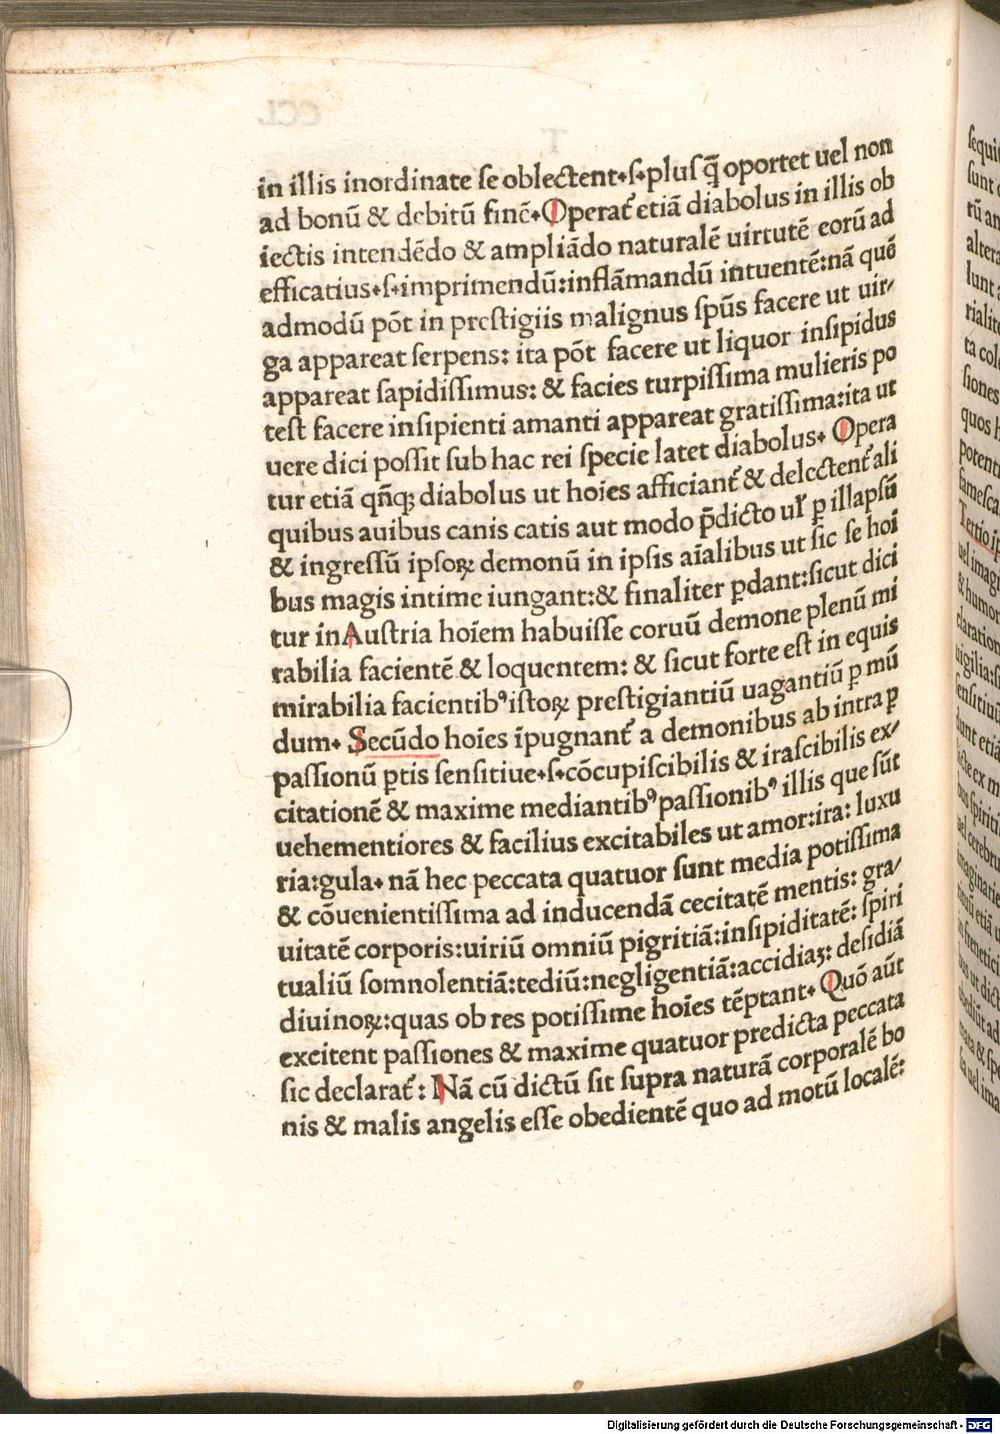 in illis inordinate ſe oblectent.ſ.pluſ q̃ oportet uel non
ad bonū & debitū finē.Operať etiā diabolus in illis ob
iectis intendēdo & ampliādo naturalē uirtutē eorū ad
efficatius.ſ.imprimendū:inflāmandū intuentē:nā quē
admodū pōt in preſtigiis malignus ſpūs facere ut uir⸗
ga appareat ſerpens: ita pōt facere ut liquor inſipidus
appareat ſapidiſſimus: & facies turpiſſima mulieris po
teſt facere inſipienti amanti appareat gratiſſima:ita ut
uere dici poſſit ſub hac rei ſpecie latet diabolus. Opera
tur etiā qñqꝫ diabolus ut hoies afficianť & delectenť ali
quibus auibus canis catis aut modo p̄dicto ul̓ ꝑ illapſū
& ingreſſū ipſoꝝ demonū in ipſis aīalibus ut ſic ſe hoī
bus magis intime iungant:& finaliter ꝑdant:ſicut dici
tur in Auſtria hoīem habuiſſe coruū demone plenū mi
rabilia facientē & loquentem: & ſicut forte eſt in equis
mirabilia facientibꝰ iſtoꝝ preſtigiantiū uagantiū ꝑ mū
dum. Secūdo hoīes īpugnanť a demonibus ab intra ꝑ
paſſionū ꝑtis ſenſitiue.ſ.cōcupiſcibilis & iraſcibilis ex⸗
citationē & maxime mediantibꝰ paſſionibꝰ illis que ſūt
uehementiores & facilius excitabiles ut amor:ira: luxu
ria:gula. nā hec peccata quatuor ſunt media potiſſima
& cōuenientiſſima ad inducendā cecitatē mentis: gra⸗
uitatē corporis:uiriū omniū pigritiā:inſipiditatē: ſpiri
tualiū ſomnolentiā:tediū:negligentiā:accidiaꝫ: deſidiā
diuinoꝝ:quas ob res potiſſime hoīes tēptant. Quō aūt
excitent paſſiones & maxime quatuor predicta peccata
ſic declarať: Nā cū dictū ſit ſupra naturā corporalē bo
nis & malis angelis eſſe obedientē quo ad motū localē:
Digitalisierung gefördert durch die Deutsche Forschungsgemeinschaft - DFG